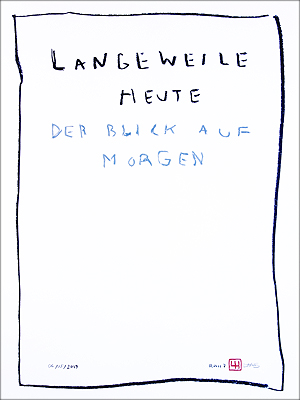 LANGEWEILE
HEUTE
DER BLICK AUF
MORGEN